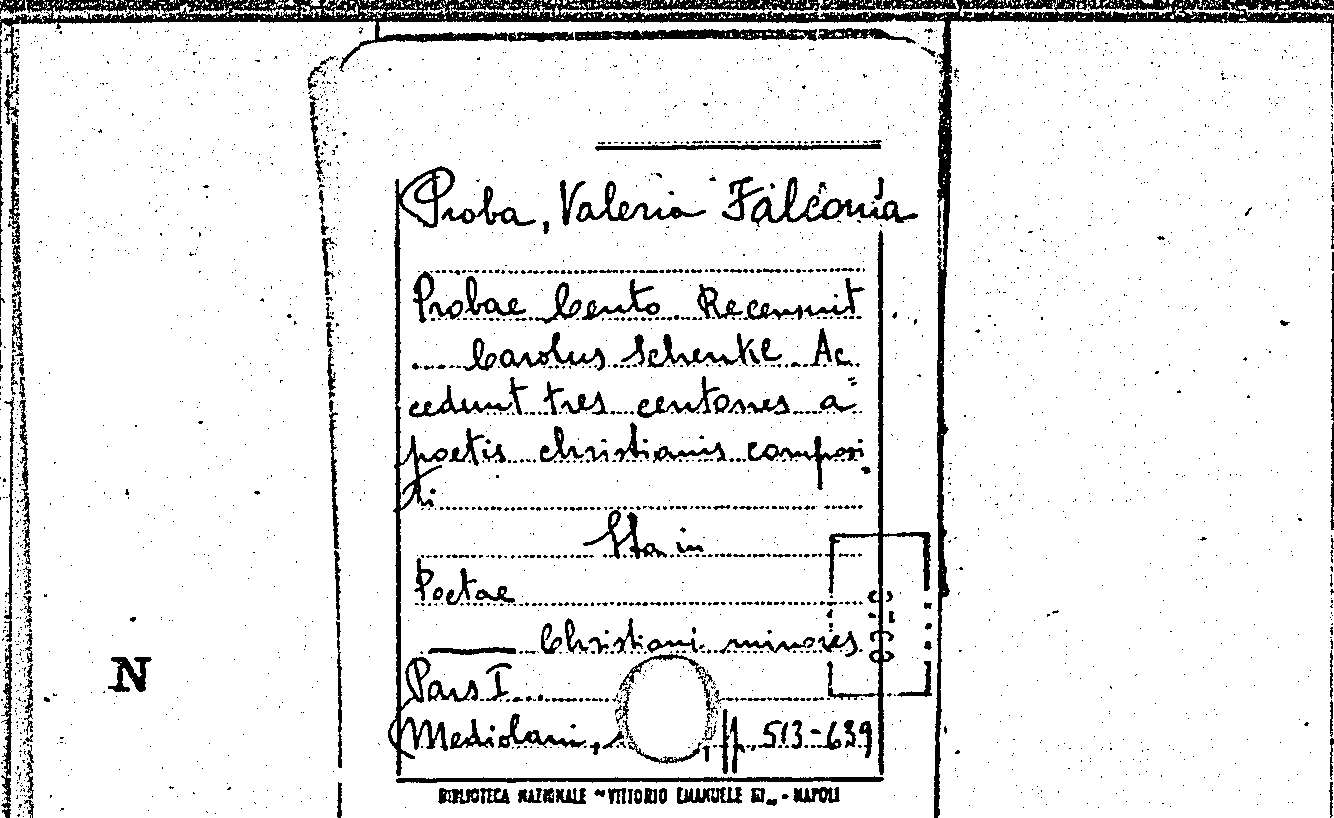 Proba, Valeria Falconia
Probae Cento. Recensuit
Carolus Schenkl. Ac
cedunt tres centones a
poetis christianis composi
ti
Sta in
Poetae
Christiani minores
Pars I
N
Mediolani, pp. 513-639
BIBLIOTECA NAZIONALE "VITTORIO EMANUELE III" - NAPOLI